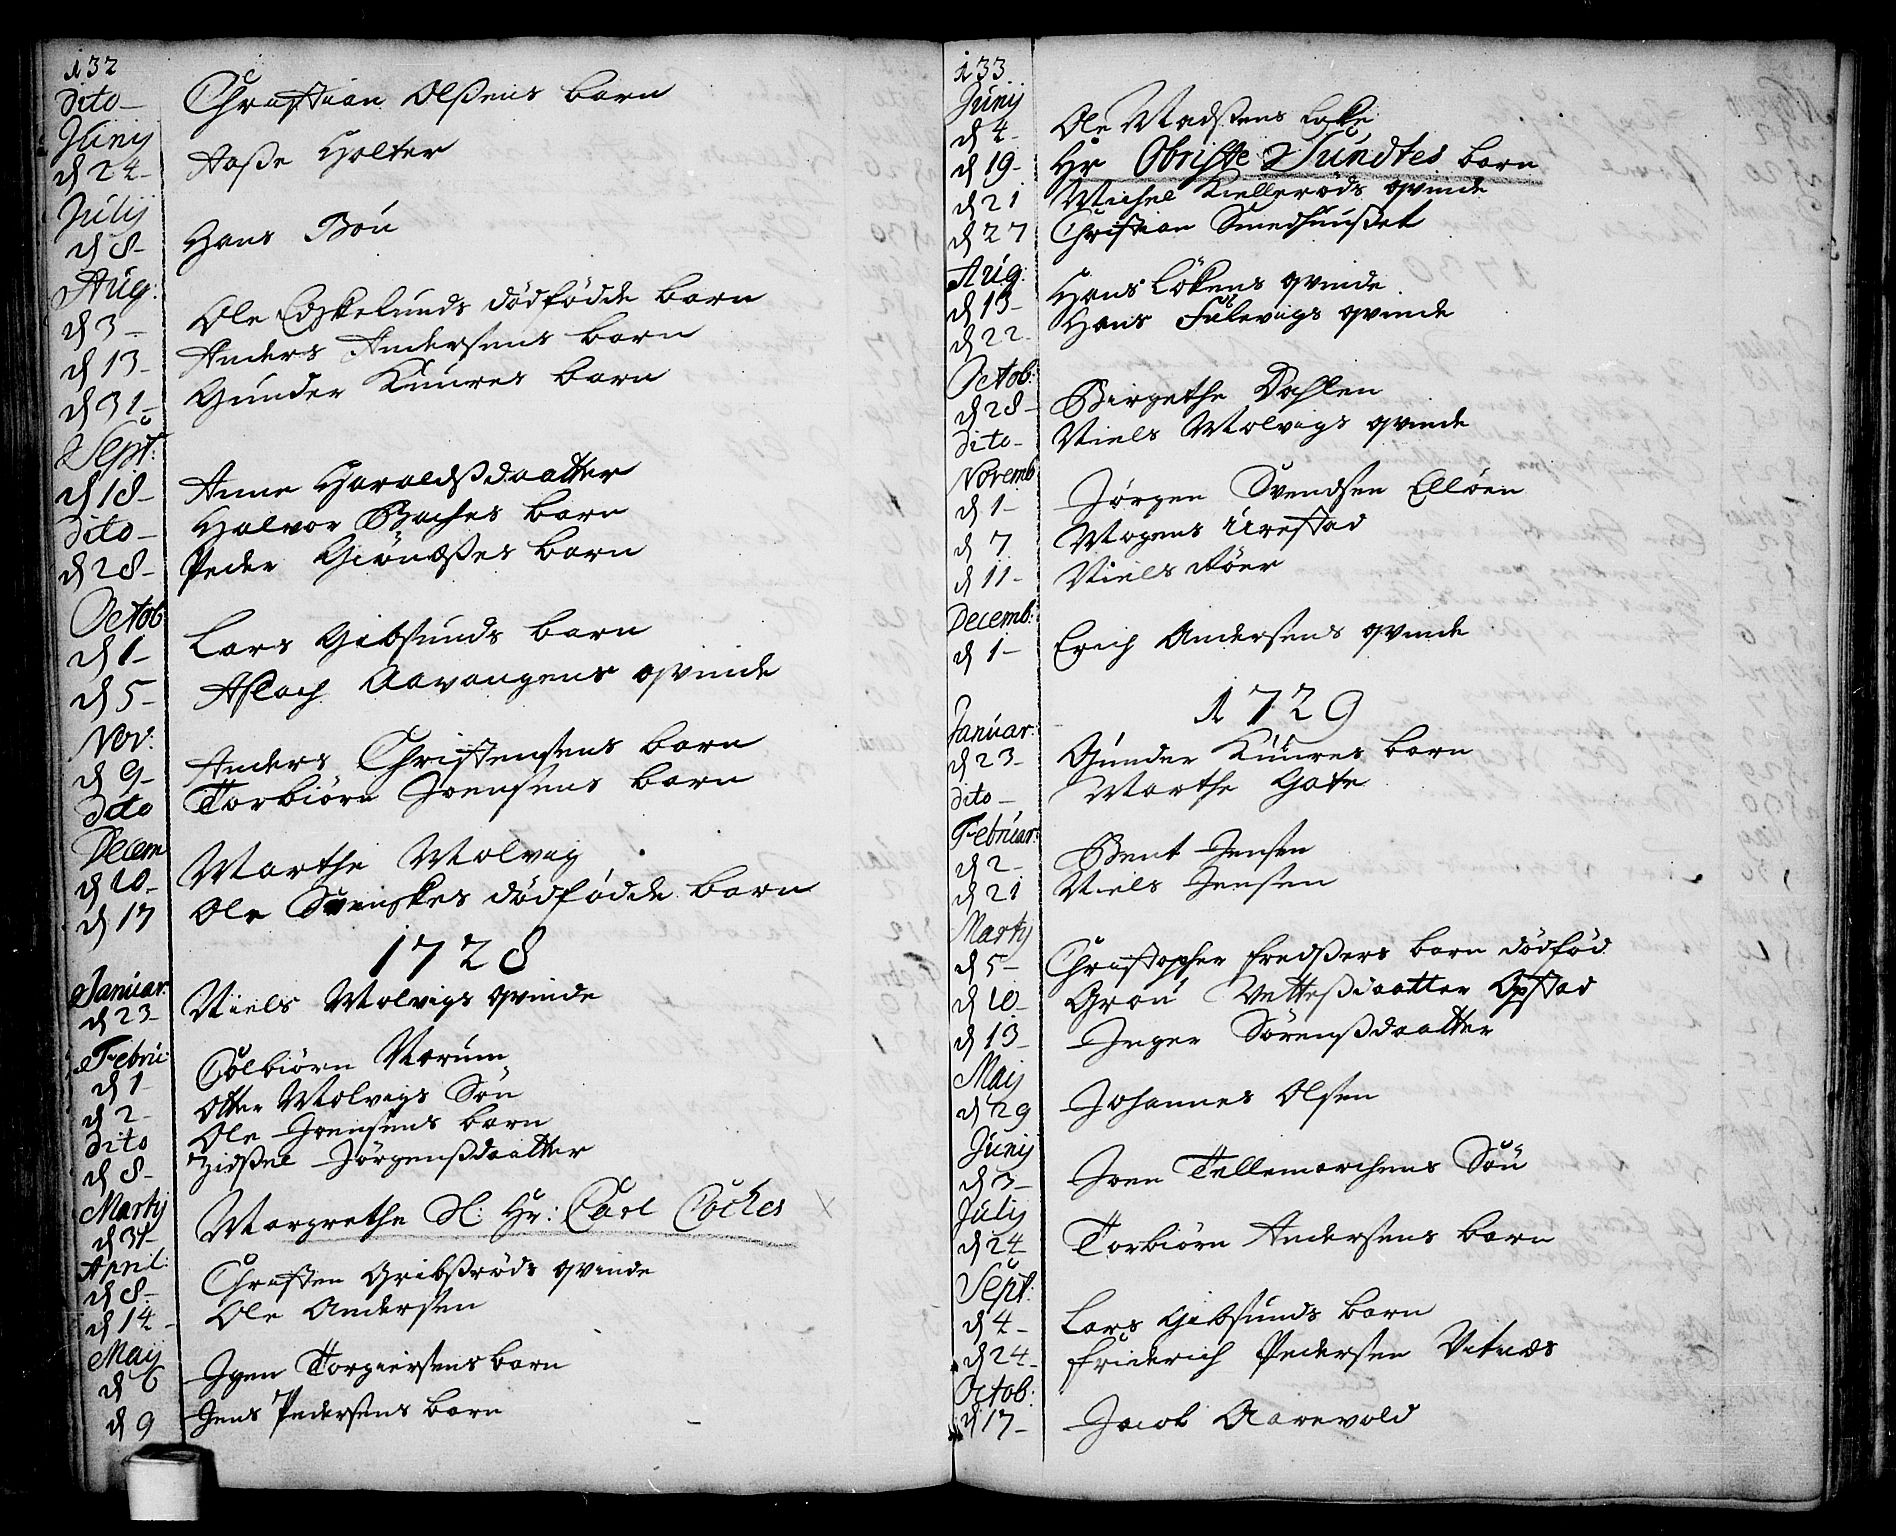 132
dito – Christian Olßens barn
Junij
d 24 – Aaße Holter
Julij
d 8 – Hans Böu
Aug:
d 3 – Ole Eskelunds dödfödde barn
d 13 – Anders Andersens barn
d 31 – Gunder Kuures barn
Sept:
d 18 – Anne Haraldßdaatter
dito – Halvor Baches barn
d 28 – Peder Giönæßes barn
Octob:
d 1 – Lars Gibsunds barn
d 5 – Aslach Aavangens qvinde
Nov:
d 9 – Anders Christensens barn
dito Torbiörn Joensens barn
Decem
d 10 – Marthe Molvig
d 17 Ole Svenskes dödfödde barn
1728
Januar:
d 23 – Niels Molvigs qvinde
Febru:
d 1 Colbiörn Narum
d 2 – Otter Molvigs Sön
dito Ole Joensens barn
d 8 – Zidßel Jörgenßdaatter
Martij
d 31 – Margrethe Sl: Hr: Carl Coches
April:
d 8 – Christen Gribßröds qvinde
d 14 – Ole Andersen
Maij
d 6 Joen Torgiersens barn
d 9 Jens Pedersens barn
133
Junij
d 4 – Ole Madsens
d 19 – Hr Obriste Sundtes barn
d 21 Michel Kielleröds qvinde
d 27 Christian Smedhuußet
Aug:
d 13 – Hans Lökens qvinde
d 22 – Hans Fulevigs qvinde
Octob:
d 28 – Birgethe Dahlen
dito – Niels Molvigs qvinde
Novemb
d 1 – Jörgen Svendsen Ellöen
d 7 Mogens Urestad
d 11 – Niels Röer
Decemb:
d 1 – Erich Andersens qvinde
1729
Januar:
d 23 – Gunder Kuures barn
dito – Marthe Gate
Februar:
d 2 – Bent Jensen
d 21 Niels Jensen
Martij
d 5 – Christopher Fredßers barn dödfød
d 10 – Grou Vetteßdaatter Opstad
d 13 – Inger Sörenßdaatter
Maij
d 29 Johannes Olsen
Junij
d 3 – Joen Tellemarchens Sön
Julij
d 24 Torbiörn Andersens barn
Sept:
d 4 – Lars Gibsunds barn
d 24 – Friderich Pedersen Vitnæs
Octob:
d 17 – Jacob Aarevold